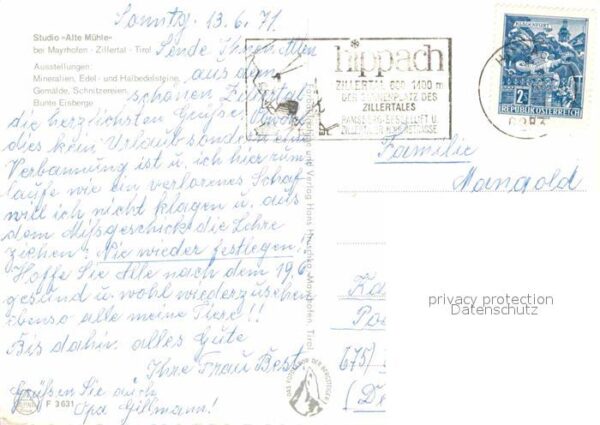 Sonntag, 13.6.71
Studio »Alte Mühle«
bei Mayrhofen · Zillertal · Tirol
Ausstellungen:
Mineralien, Edel- und Halbedelsteine,
Gemälde, Schnitzereien,
Bunte Eisberge
Sende Ihnen Allen
aus dem
schönen Zillertal
die herzlichsten Grüße. Obwohl
dies kein Urlaub sondern eine
Verbannung ist u. ich hier rum
laufe wie ein verlorenes Schaf
will ich nicht klagen u. aus
dem Mißgeschick die Lehre
ziehen: Nie wieder festlegen!
Hoffe Sie Alle nach dem 19.6
gesund u. wohl wiederzusehen
ebenso alle meine Tiere!!
Bis dahin alles Gute
Ihre Frau Best.
Grüßen Sie auch
Opa Gillmann!
F 3631
Verlag Hans Mayrhofen Tirol
hippach
ZILLERTAL 600 1400 m
DES ZILLERTALES
KLAGENFURT
2S
REPUBLIK ÖSTERREICH
Familie
Mangold
675/
privacy protection
Datenschutz